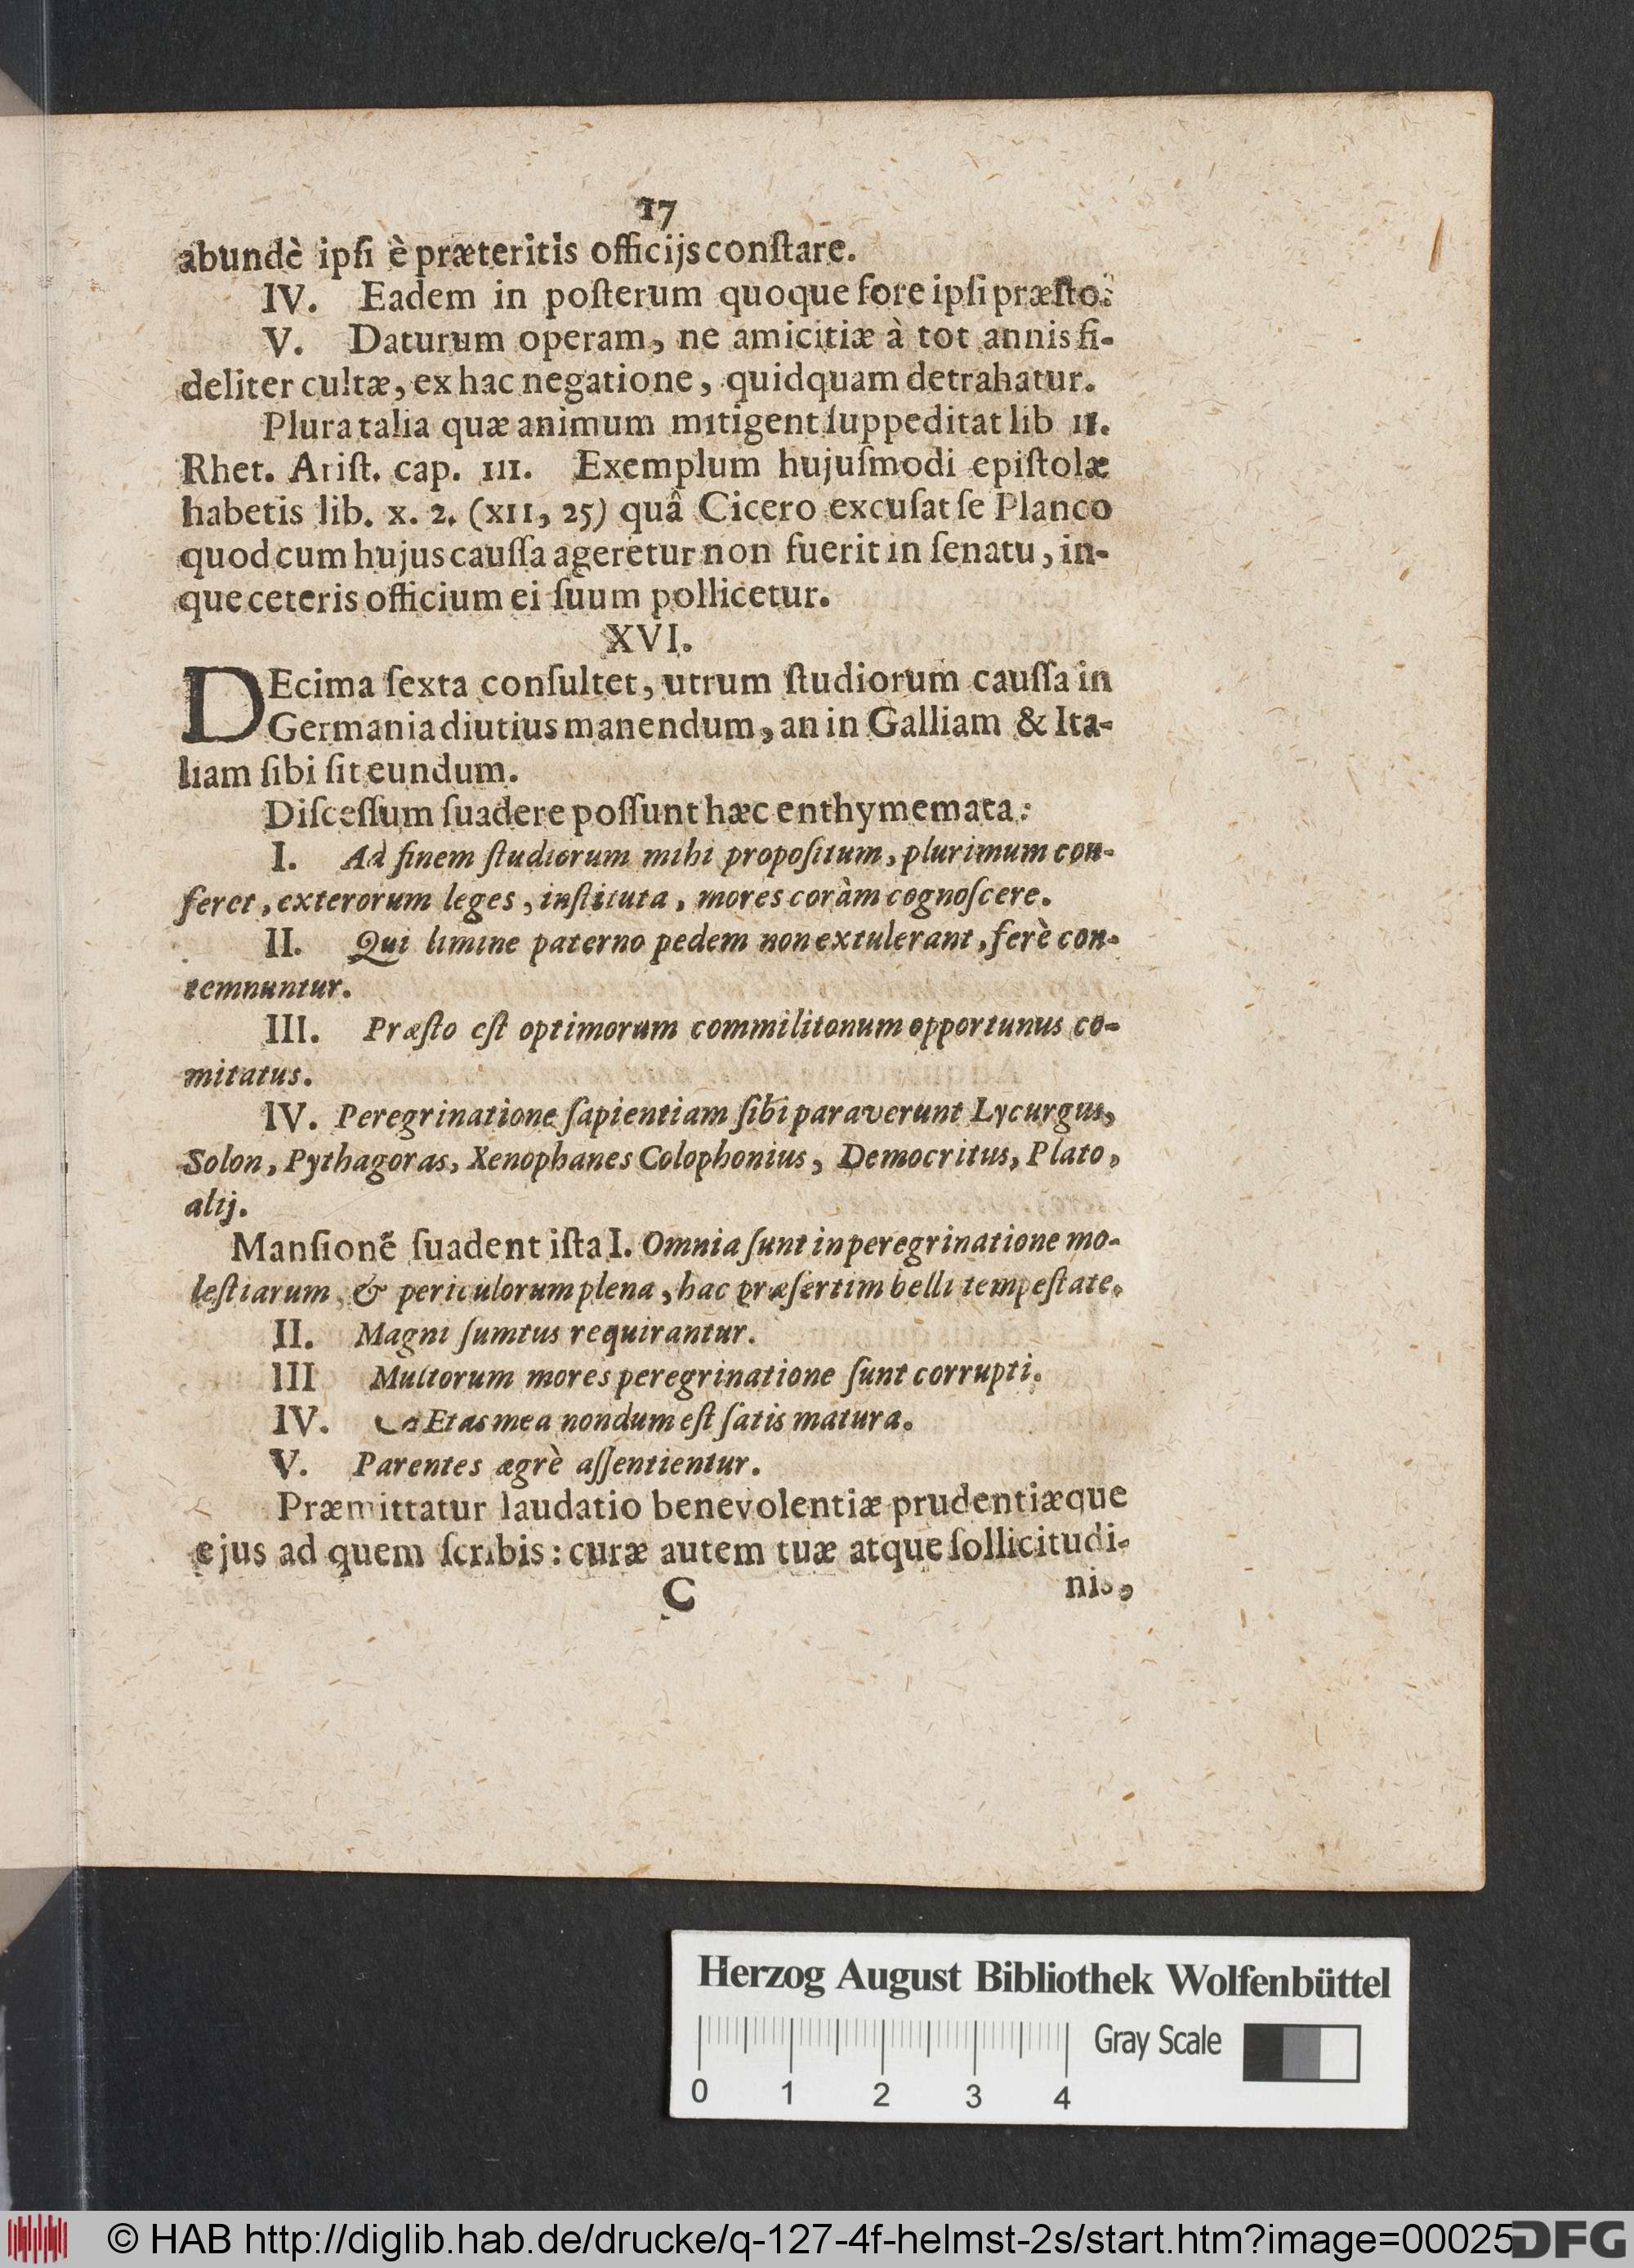 17
abundè ipſi è præteritis officijs conſtare.
IV. Eadem in poſterum quoque fore ipſi præſto.
V. Daturum operam, ne amicitiæ à tot annis fi-
deliter cultæ, ex hac negatione, quidquam detrahatur.
Plura talia quæ animum mitigent ſuppeditat lib II.
Rhet. Ariſt. cap. III. Exemplum hujuſmodi epiſtolæ
habetis lib. x. 2. (XII, 25) quâ Cicero excuſat ſe Planco
quod cum hujus cauſſa ageretur non fuerit in ſenatu, in-
que ceteris officium ei ſuum pollicetur.
XVI.
DEcima ſexta conſultet, utrum ſtudiorum cauſſa in
Germania diutius manendum, an in Galliam & Ita-
liam ſibi ſit eundum.
Diſceſſum ſuadere poſſunt hæc enthymemata:
I. Ad finem ſtudiorum mihi propoſitum, plurimum con-
feret, exterorum leges, inſtituta, mores coràm cognoſcere.
II. Qui limine paterno pedem non extulerant, ferè con-
temnuntur.
III. Præſto eſt optimorum commilitonum opportunus co-
mitatus.
IV. Peregrinatione ſapientiam ſibi paraverunt Lycurgus,
Solon, Pythagoras, Xenophanes Colophonius, Democritus, Plato,
alij.
Manſionẽ ſuadent iſta I. Omnia ſunt in peregrinatione mo-
leſtiarum & periculorum plena, hac præſertim belli tempeſtate.
II. Magni ſumtus requirantur.
III Multorum mores peregrinatione ſunt corrupti.
IV. Ætas mea nondum eſt ſatis matura.
V. Parentes ægrè aſſentientur.
Præmittatur laudatio benevolentiæ prudentiæque
ejus ad quem ſcribis: curæ autem tuæ atque ſollicitudi-
C nis,
Herzog August Bibliothek Wolfenbüttel
Gray Scale
0 1 2 3 4
© HAB http://diglib.hab.de/drucke/q-127-4f-helmst-2s/start.htm?image=00025
DFG